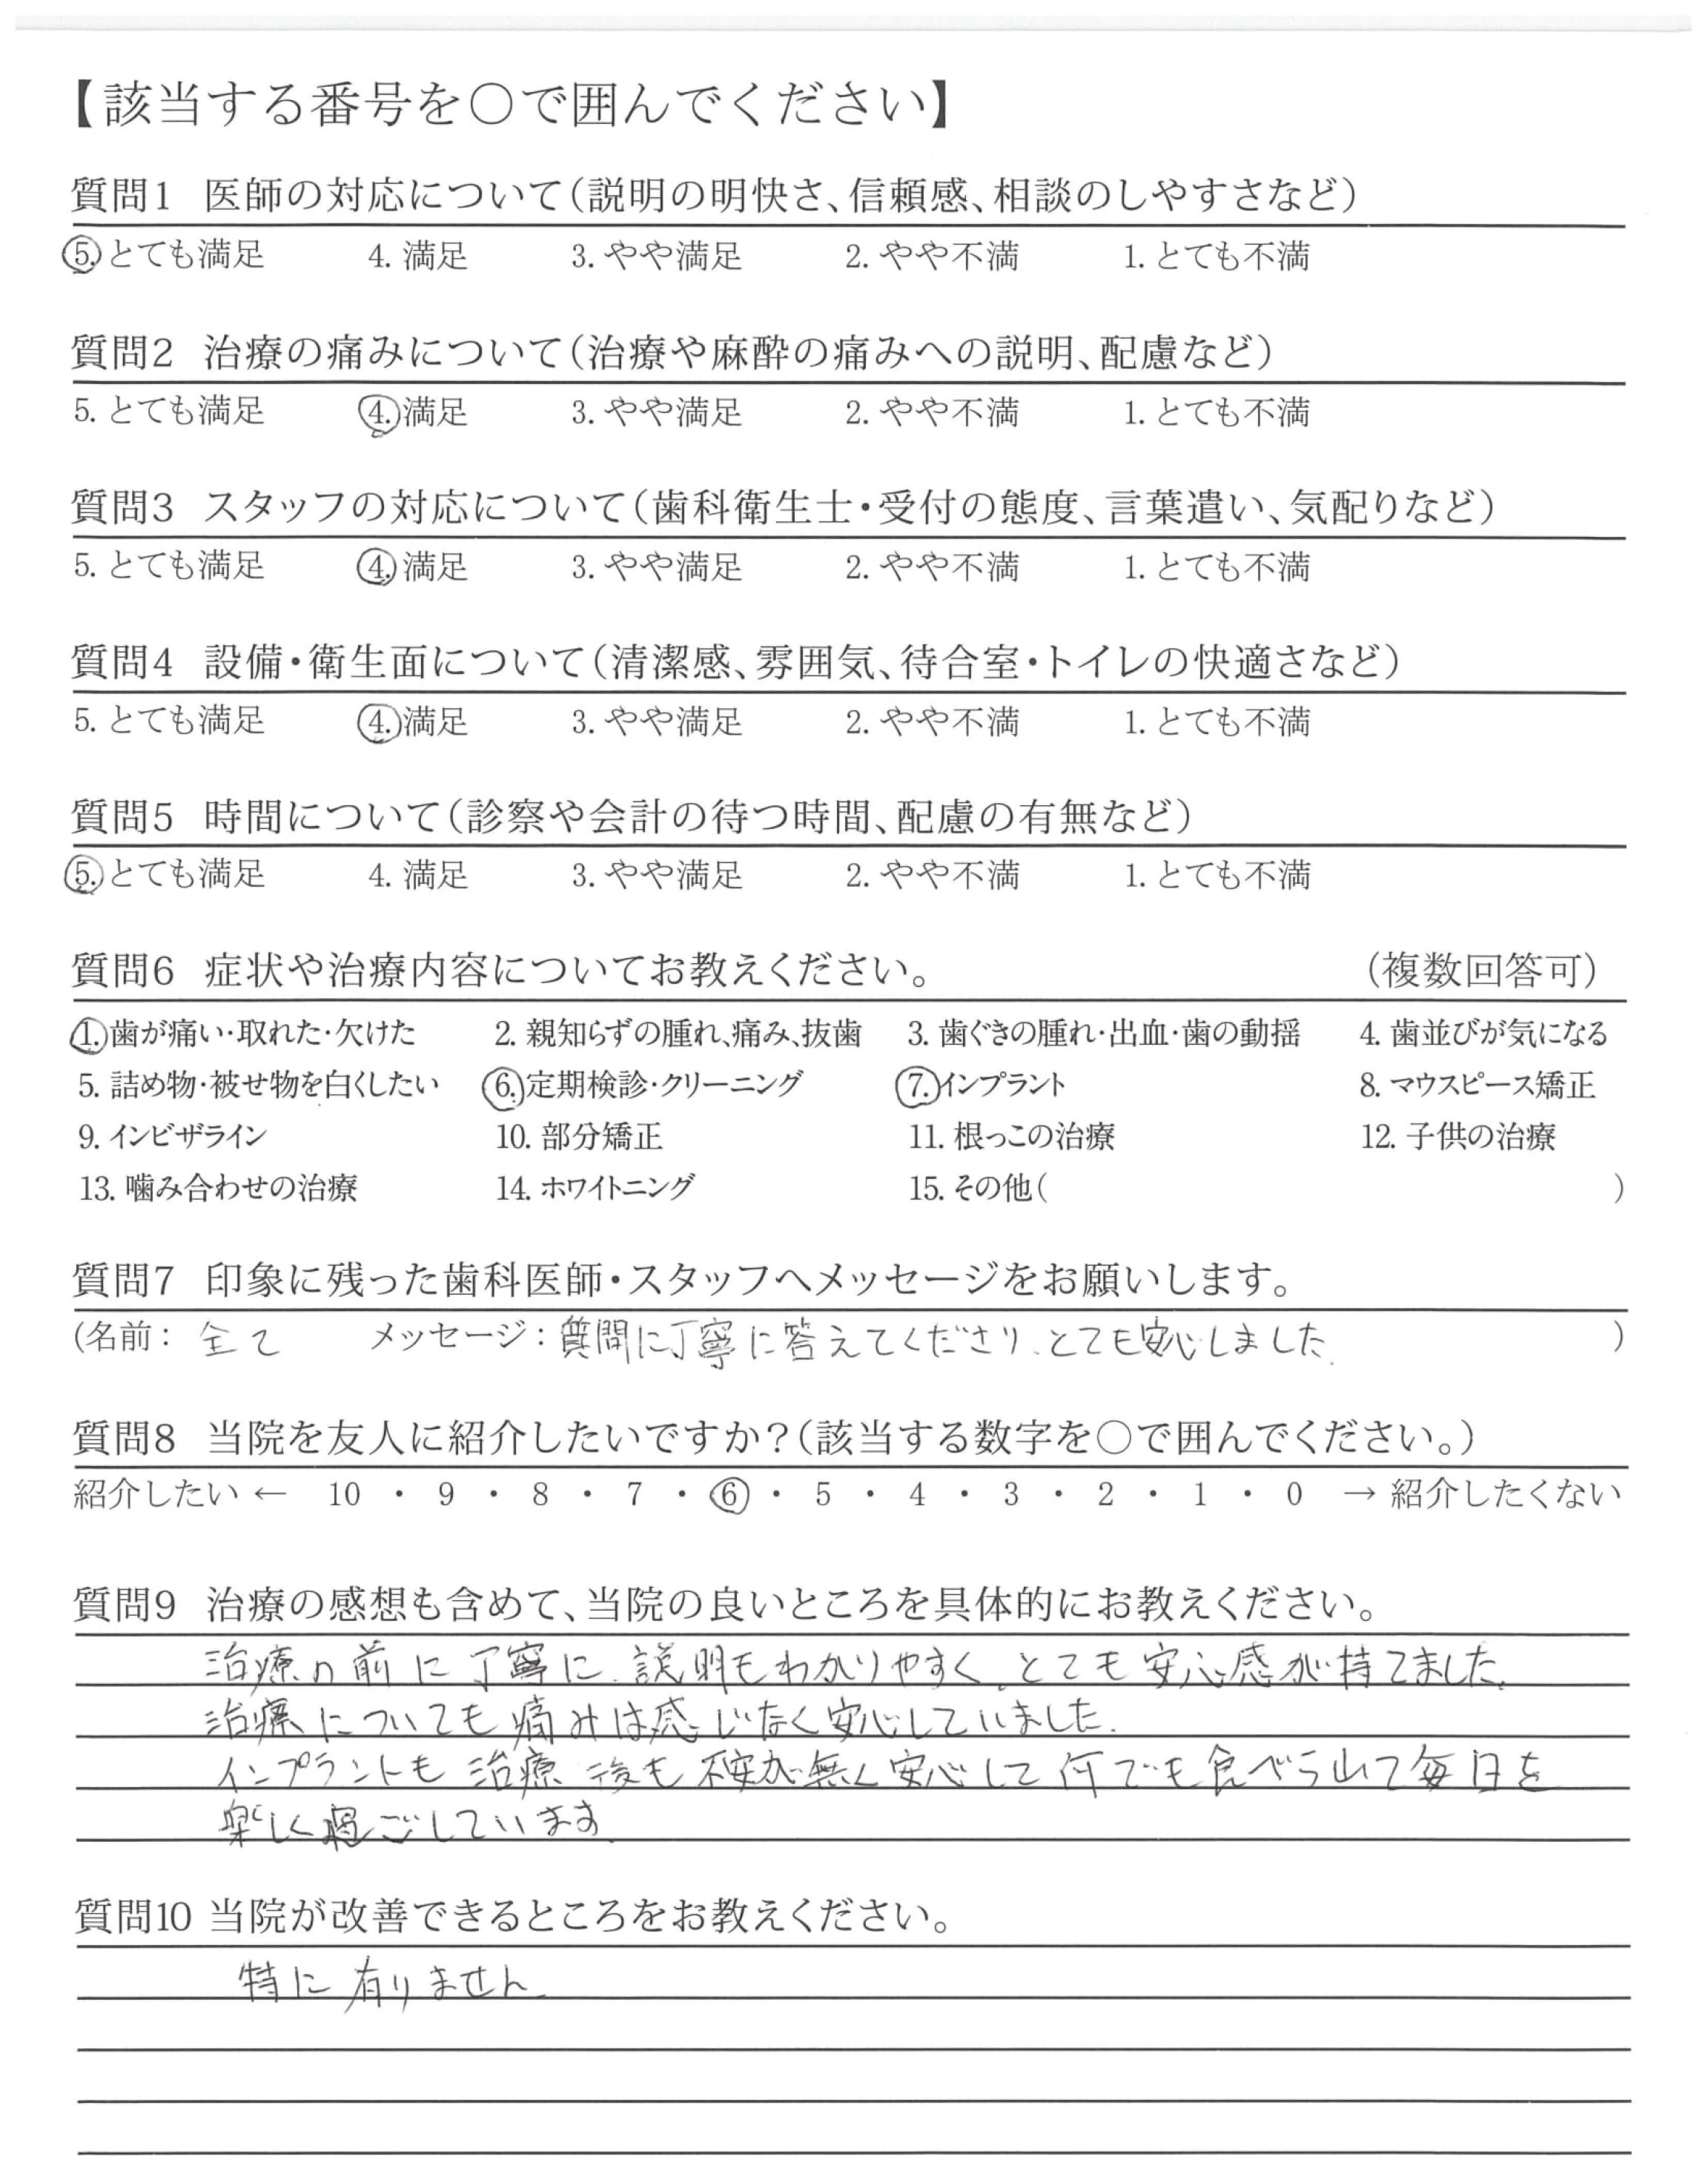 【該当する番号を○で囲んでください】
質問1 医師の対応について(説明の明快さ、信頼感、相談のしやすさなど)
5. とても満足 4. 満足 3. やや満足 2. やや不満 1. とても不満
質問2 治療の痛みについて(治療や麻酔の痛みへの説明、配慮など)
5. とても満足 4. 満足 3. やや満足 2. やや不満 1. とても不満
質問3 スタッフの対応について(歯科衛生士・受付の態度、言葉遣い、気配りなど)
5. とても満足 4. 満足 3. やや満足 2. やや不満 1. とても不満
質問4 設備・衛生面について(清潔感、雰囲気、待合室・トイレの快適さなど)
5. とても満足 4. 満足 3. やや満足 2. やや不満 1. とても不満
質問5 時間について(診察や会計の待つ時間、配慮の有無など)
5. とても満足 4. 満足 3. やや満足 2. やや不満 1. とても不満
質問6 症状や治療内容についてお教えください。 (複数回答可)
1. 歯が痛い・取れた・欠けた 2. 親知らずの腫れ、痛み、抜歯 3. 歯ぐきの腫れ・出血・歯の動揺 4. 歯並びが気になる
5. 詰め物・被せ物を白くしたい 6. 定期検診・クリーニング 7. インプラント 8. マウスピース矯正
9. インビザライン 10. 部分矯正 11. 根っこの治療 12. 子供の治療
13. 噛み合わせの治療 14. ホワイトニング 15. その他( )
質問7 印象に残った歯科医師・スタッフへメッセージをお願いします。
(名前: 全て メッセージ: 質問に丁寧に答えてくださり、とても安心しました。 )
質問8 当院を友人に紹介したいですか?(該当する数字を○で囲んでください。)
紹介したい ← 10 ・ 9 ・ 8 ・ 7 ・ 6 ・ 5 ・ 4 ・ 3 ・ 2 ・ 1 ・ 0 → 紹介したくない
質問9 治療の感想も含めて、当院の良いところを具体的にお教えください。
治療の前に丁寧に、説明もわかりやすく、とても安心感が持てました。
治療についても痛みは感じなく安心していました。
インプラントも治療後も不安が無く安心して何でも食べられて毎日を
楽しく過ごしています。
質問10 当院が改善できるところをお教えください。
特に有りません。